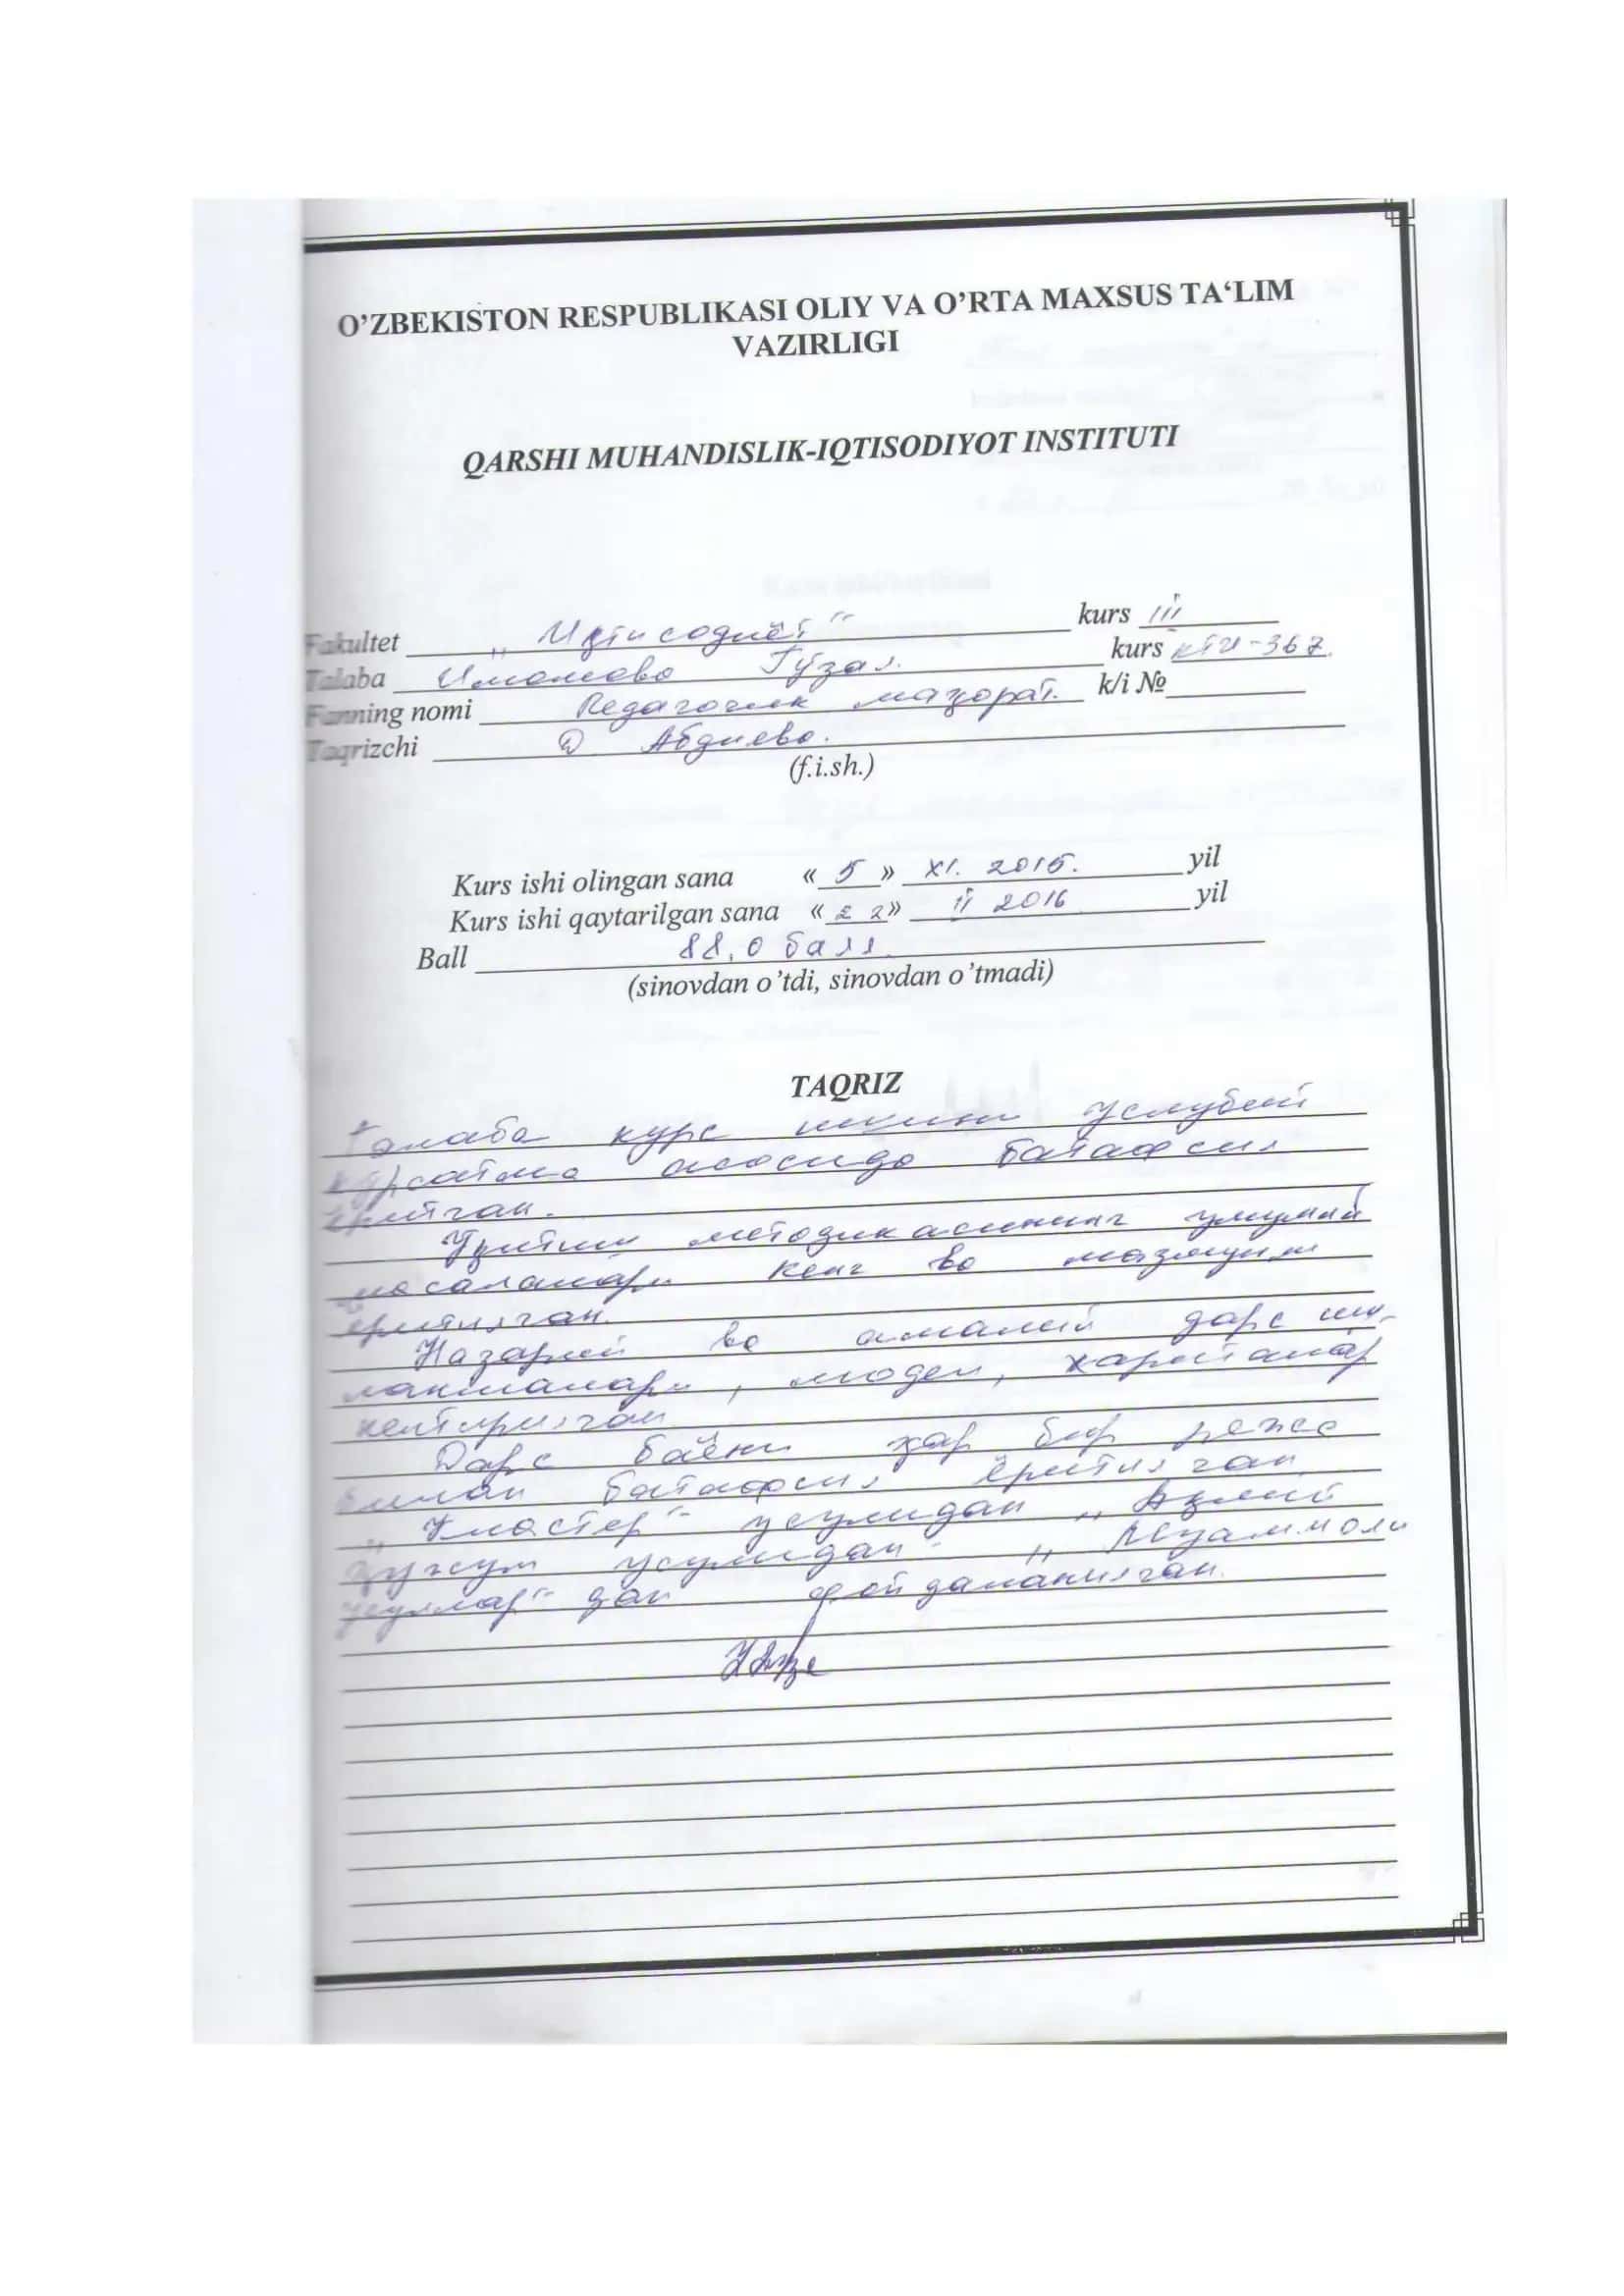 O’ZBEKISTON RESPUBLIKASI OLIY VA O’RTA MAXSUS TA‘LIM
VAZIRLIGI
QARSHI MUHANDISLIK-IQTISODIYOT INSTITUTI
Fakultet „Иқтисодиёт“ kurs III
Talaba Имомова Гўзал. kurs КТИ-367.
Fanning nomi Педагогик маҳорат. k/i №
Taqrizchi Д Абдиева.
(f.i.sh.)
Kurs ishi olingan sana «5» XI. 2015. yil
Kurs ishi qaytarilgan sana «22» II 2016 yil
Ball 88,0 балл
(sinovdan o’tdi, sinovdan o’tmadi)
TAQRIZ
Талаба курс ишини услубий
кўрсатма асосида батафсил
ёритган.
Ўқитиш методикасининг умумий
масалалари кенг ва мазмунли
ёритилган.
Назарий ва амалий дарс иш-
ланмалари, модели, хариталар
келтирилган
Дарс баёни ҳар бир режа
билан батафсил ёритилган
„Кластер“ усулидан „Ақлий
ҳужум усулидан“ „Муаммоли
усуллар“ дан фойдаланилган.